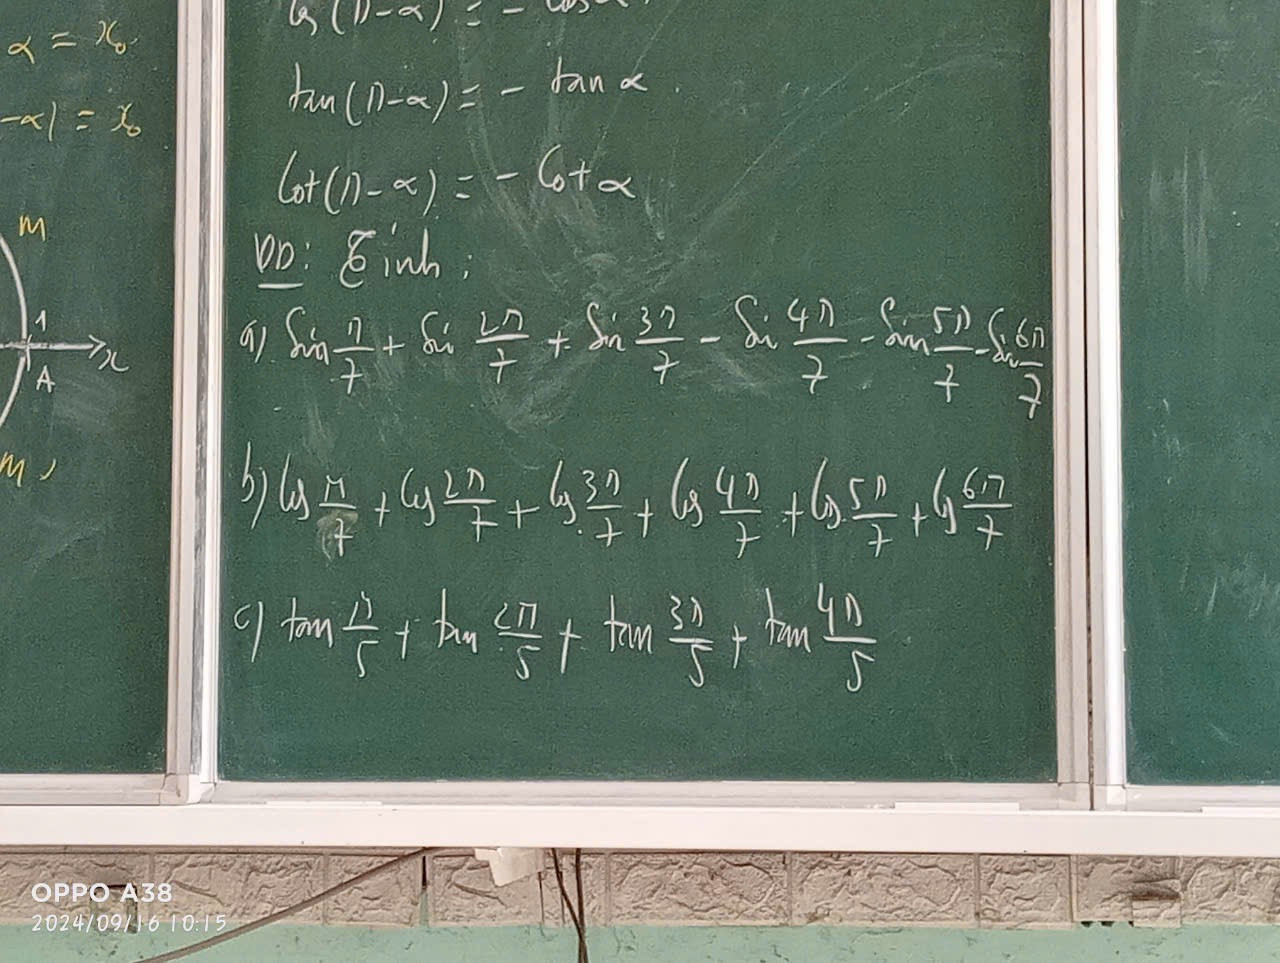 α = x₀
-α) = x₀
m
1
A
x
m'
cos(π-α) = - cosα.
tan(π-α) = - tan α.
Cot(π-α) = - Cot α
VD: Tính:
a) Sin π/7 + Sin 2π/7 + Sin 3π/7 - Sin 4π/7 - Sin 5π/7 - Sin 6π/7
b) Cos π/7 + Cos 2π/7 + Cos 3π/7 + Cos 4π/7 + Cos 5π/7 + Cos 6π/7
c) tan π/5 + tan 2π/5 + tan 3π/5 + tan 4π/5
OPPO A38
2024/09/16 10:15